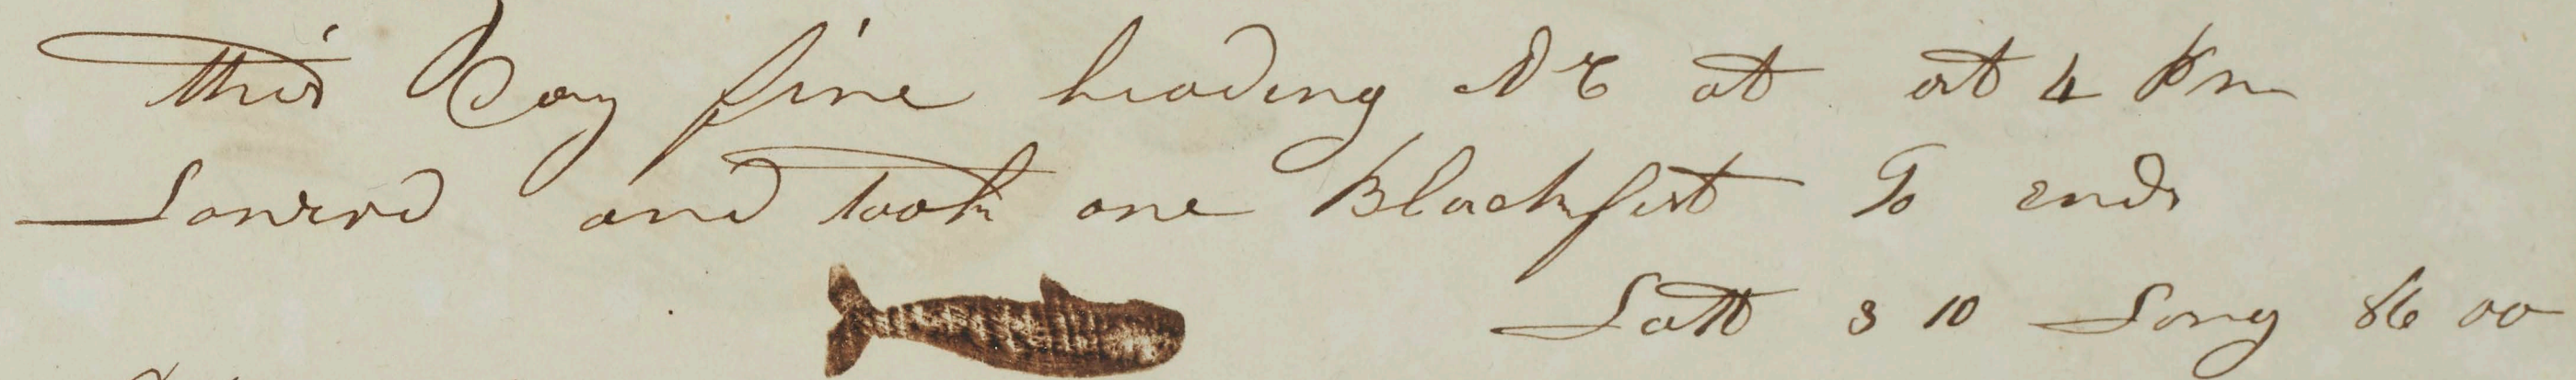 this Day fine heading NE at at 4 Pm
Lowerd and took one Blackfist So ends
Latt 3 10 Long 86 00